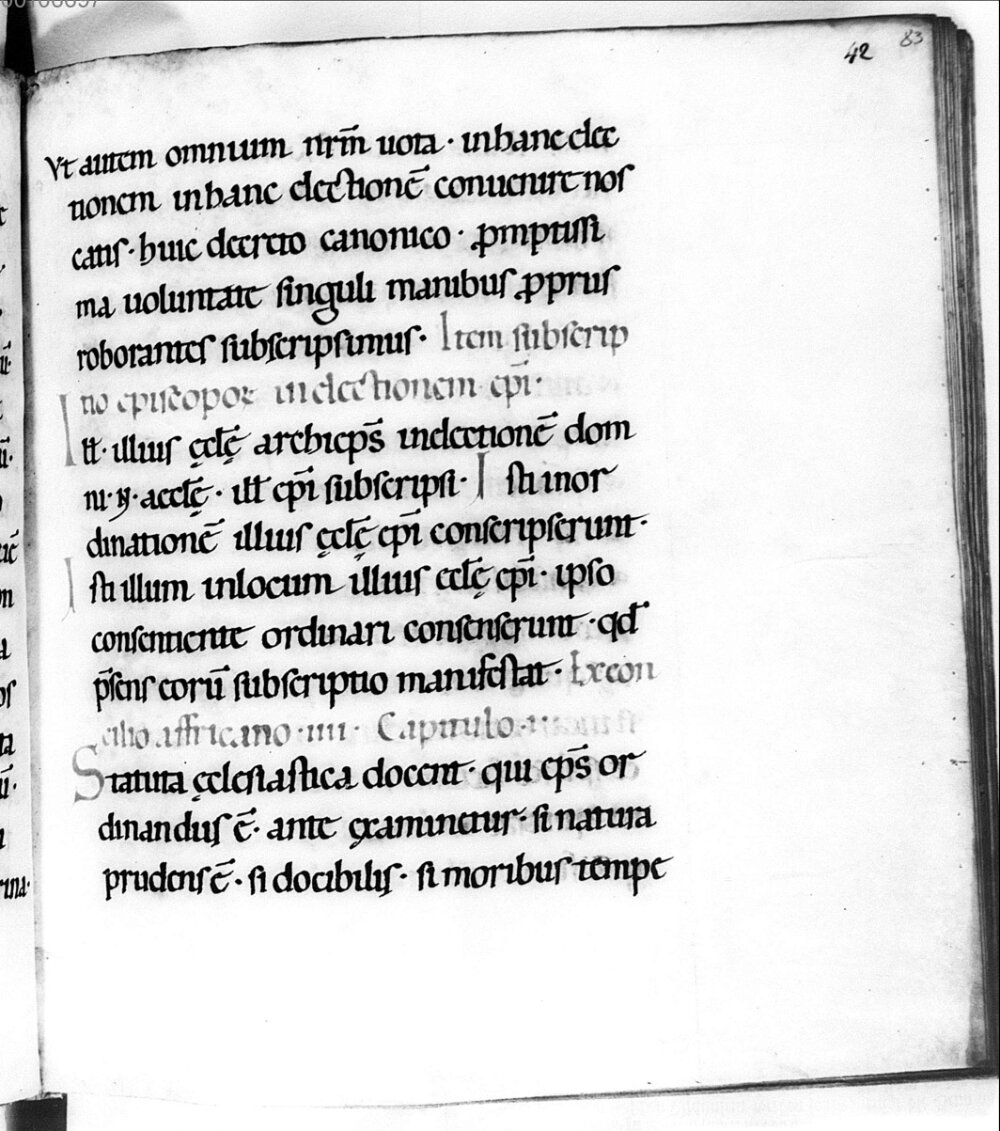 42 83
Vt autem omnium nr̄m uota · in hanc elec
tionem in hanc electionē conuenire nos
catis · huic decreto canonico · ꝓmptissi
ma uoluntate singuli manibus ꝓpriis
roborantes subscripsimus · Item subscrip
tio episcopoꝝ in electionem ep̄i ·
Itt · illius ęclę̄ archiep̄s in electionē dom
ni · ỹ · acclę̄ · itt ep̄i subscripsi · Isti in or
dinationē illius ęclę̄ ep̄i conscripserunt ·
Isti illum in locum illius eclę̄ ep̄i · ipso
consentiente ordinari consenserunt · qđ
p̄sens eorū subscriptio manifestat · Ex con
cilio affricano · iiii · Capitulo · i ·
Statuta ęclesiastica docent · qui ep̄s or
dinandus ē · ante ęxaminetur · si natura
prudens ē · si docibilis · si moribus tempe